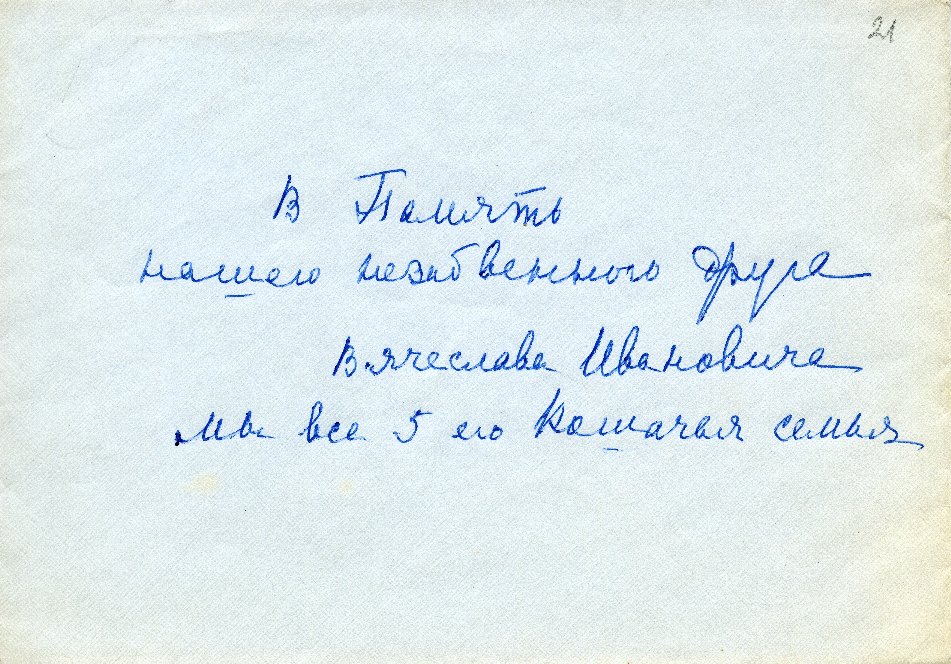 21
В Память
нашего незабвенного друга
Вячеслава Ивановича
мы все 5 его Кошачья семья